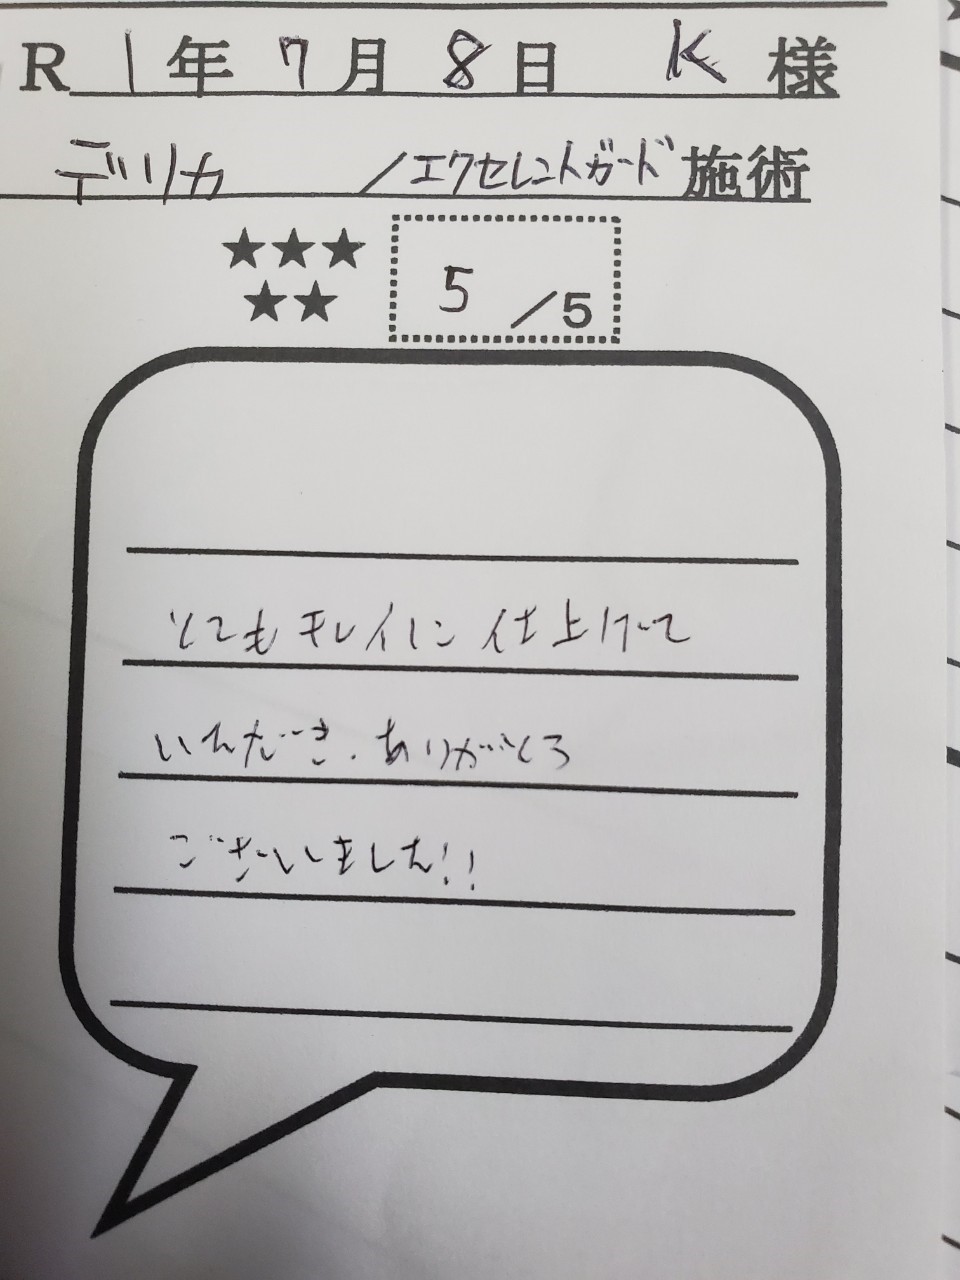 R 1年 7月 8日 K 様
デリカ /エクセレントガード施術
★★★
★★
5 /5
とてもキレイに仕上げて
いただき、ありがとう
ございました!!